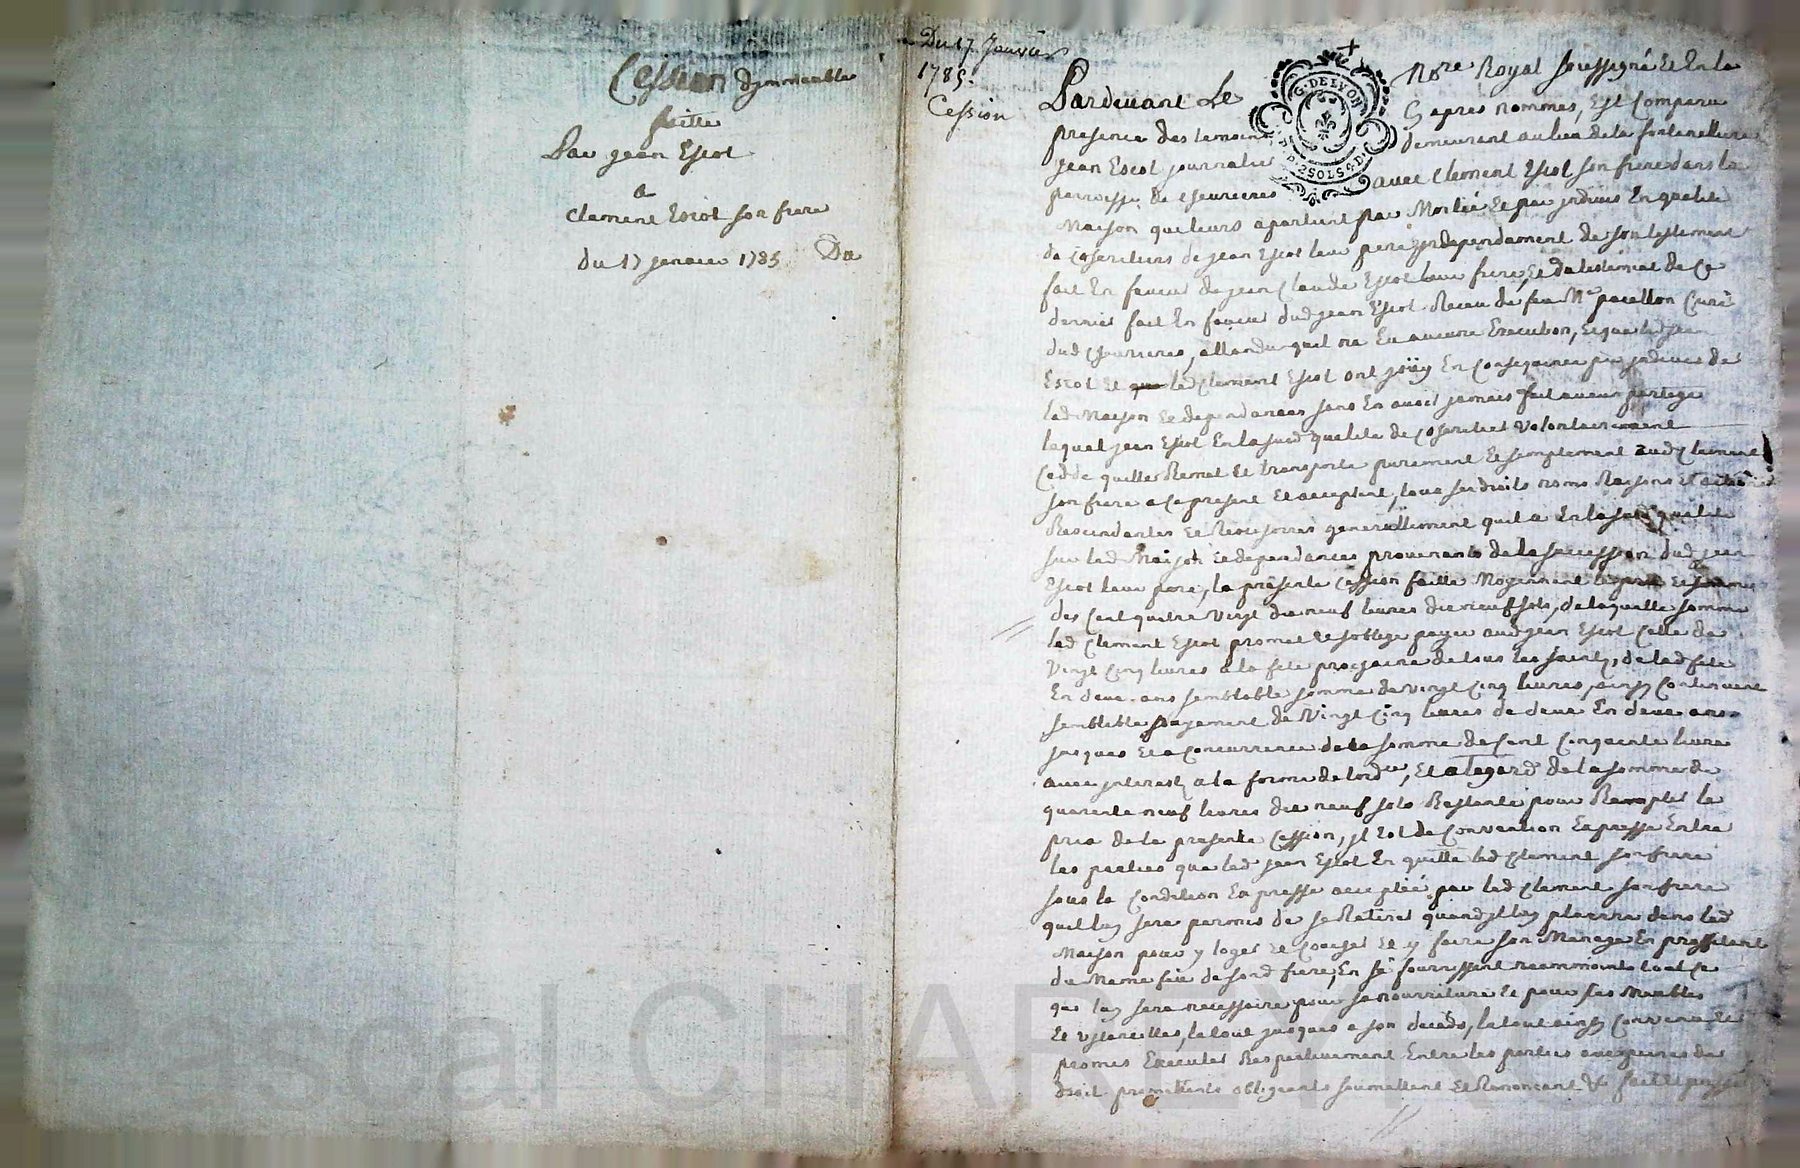 Cession dimmeuble
faitte
Par jean Escot
a
Clement Escot son frere
du 17 janvier 1785
Du 17 Janvier
1785
Cession
G. DE LYON
2 SOLS 4 D.
Pardevant Le Nore Royal soussigné Et En la
presence des temoins Cy apres nommes, Est Comparu
jean Escot journalier demeurant au lieu de la fontanelle
parroisse de avec Clement Escot son frere dans la
Maison que leurs apartient par Moitié Et par jndivis En qualité
de Coheritiers de jean Escot leur pere jndependament de son testament
fait En faveur de jean Claude Escot leur frere, Et du testament de Ce
dernier fait En faveur dud jean Escot Receu de feu Me Curé
dud attandu quil na Eu aucune Execution, Et que led jean
Escot Et que led Clement Escot ont joüy En Consequence par jndivis de
lad Maison Et dependances sans En avoir jamais fait aucun partage
lequel jean Escot En la susd qualité de Coheritier Volontairement
Cedde quitte Remet Et transporte purement Et simplement aud Clement
son frere a Ce present Et acceptant, tous ses droits noms Raisons Et actions
Rescindantes Et Rescisoires generallement quil a En la susd qualité
sur lad Maison Et dependances provenants de la succession dud jean
Escot leur pere, la présente Cession faitte Moyennant le prix Et somme
des Cent quatre Vingt dix neuf livres dix neuf sols, de laquelle somme
led Clement Escot promet Et soblige payer aud jean Escot Celle de
Vingt Cinq livres a la fete prochaine de tous les saints, de lad fete
En deux ans semblable somme de vingt Cinq livres, ainsy Continuant
semblable payement de Vingt Cinq livres de deux En deux ans
jusques Et a Concurrence de la somme de Cent Cinquante livres
avec jnterest a la forme de lordce, Et a legard de la somme de
quarente neuf livres dix neuf sols Restante pour Remplir le
prix de la presente Cession, jl Est de Convention Expresse Entre
les parties que led jean Escot En quitte led Clement son frere
sous la Condition Expresse acceptée par led Clement son frere
quil luy sera permis de se Retirer quand jl luy plaira dans lad
Maison pour y loger Et Coucher Et y faire son Menage En proffitant
du Meme feu de sond frere, En se fournissant neammoins tout Ce
que luy sera necessaire pour sa nourriture Et pour ses Meubles
Et Ustancilles, le tout jusques a son decéds, le tout ainsy Convenu Et
promis Executer Respectivement Entre les parties aux peines de
droit promettants obligeants soumettant Et Renonçant &c fait Et passé
Pascal CHAREYRON